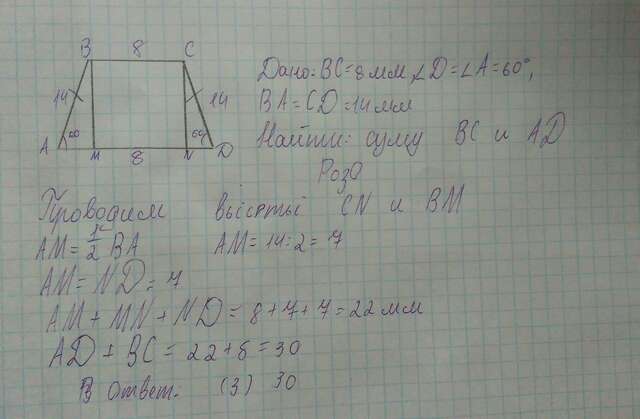 B 8 C
14 14
A 60 M 8 N 60 D
Дано: BC = 8 мм, ∠D = ∠A = 60°,
BA = CD = 14 мм
Найти: суму BC и AD
Проводим высоты CN и BM
AM = 1/2 BA AM = 14 : 2 = 7
AM = ND = 7
AM + MN + ND = 8 + 7 + 7 = 22 мм
AD + BC = 22 + 8 = 30
Ответ: (3) 30